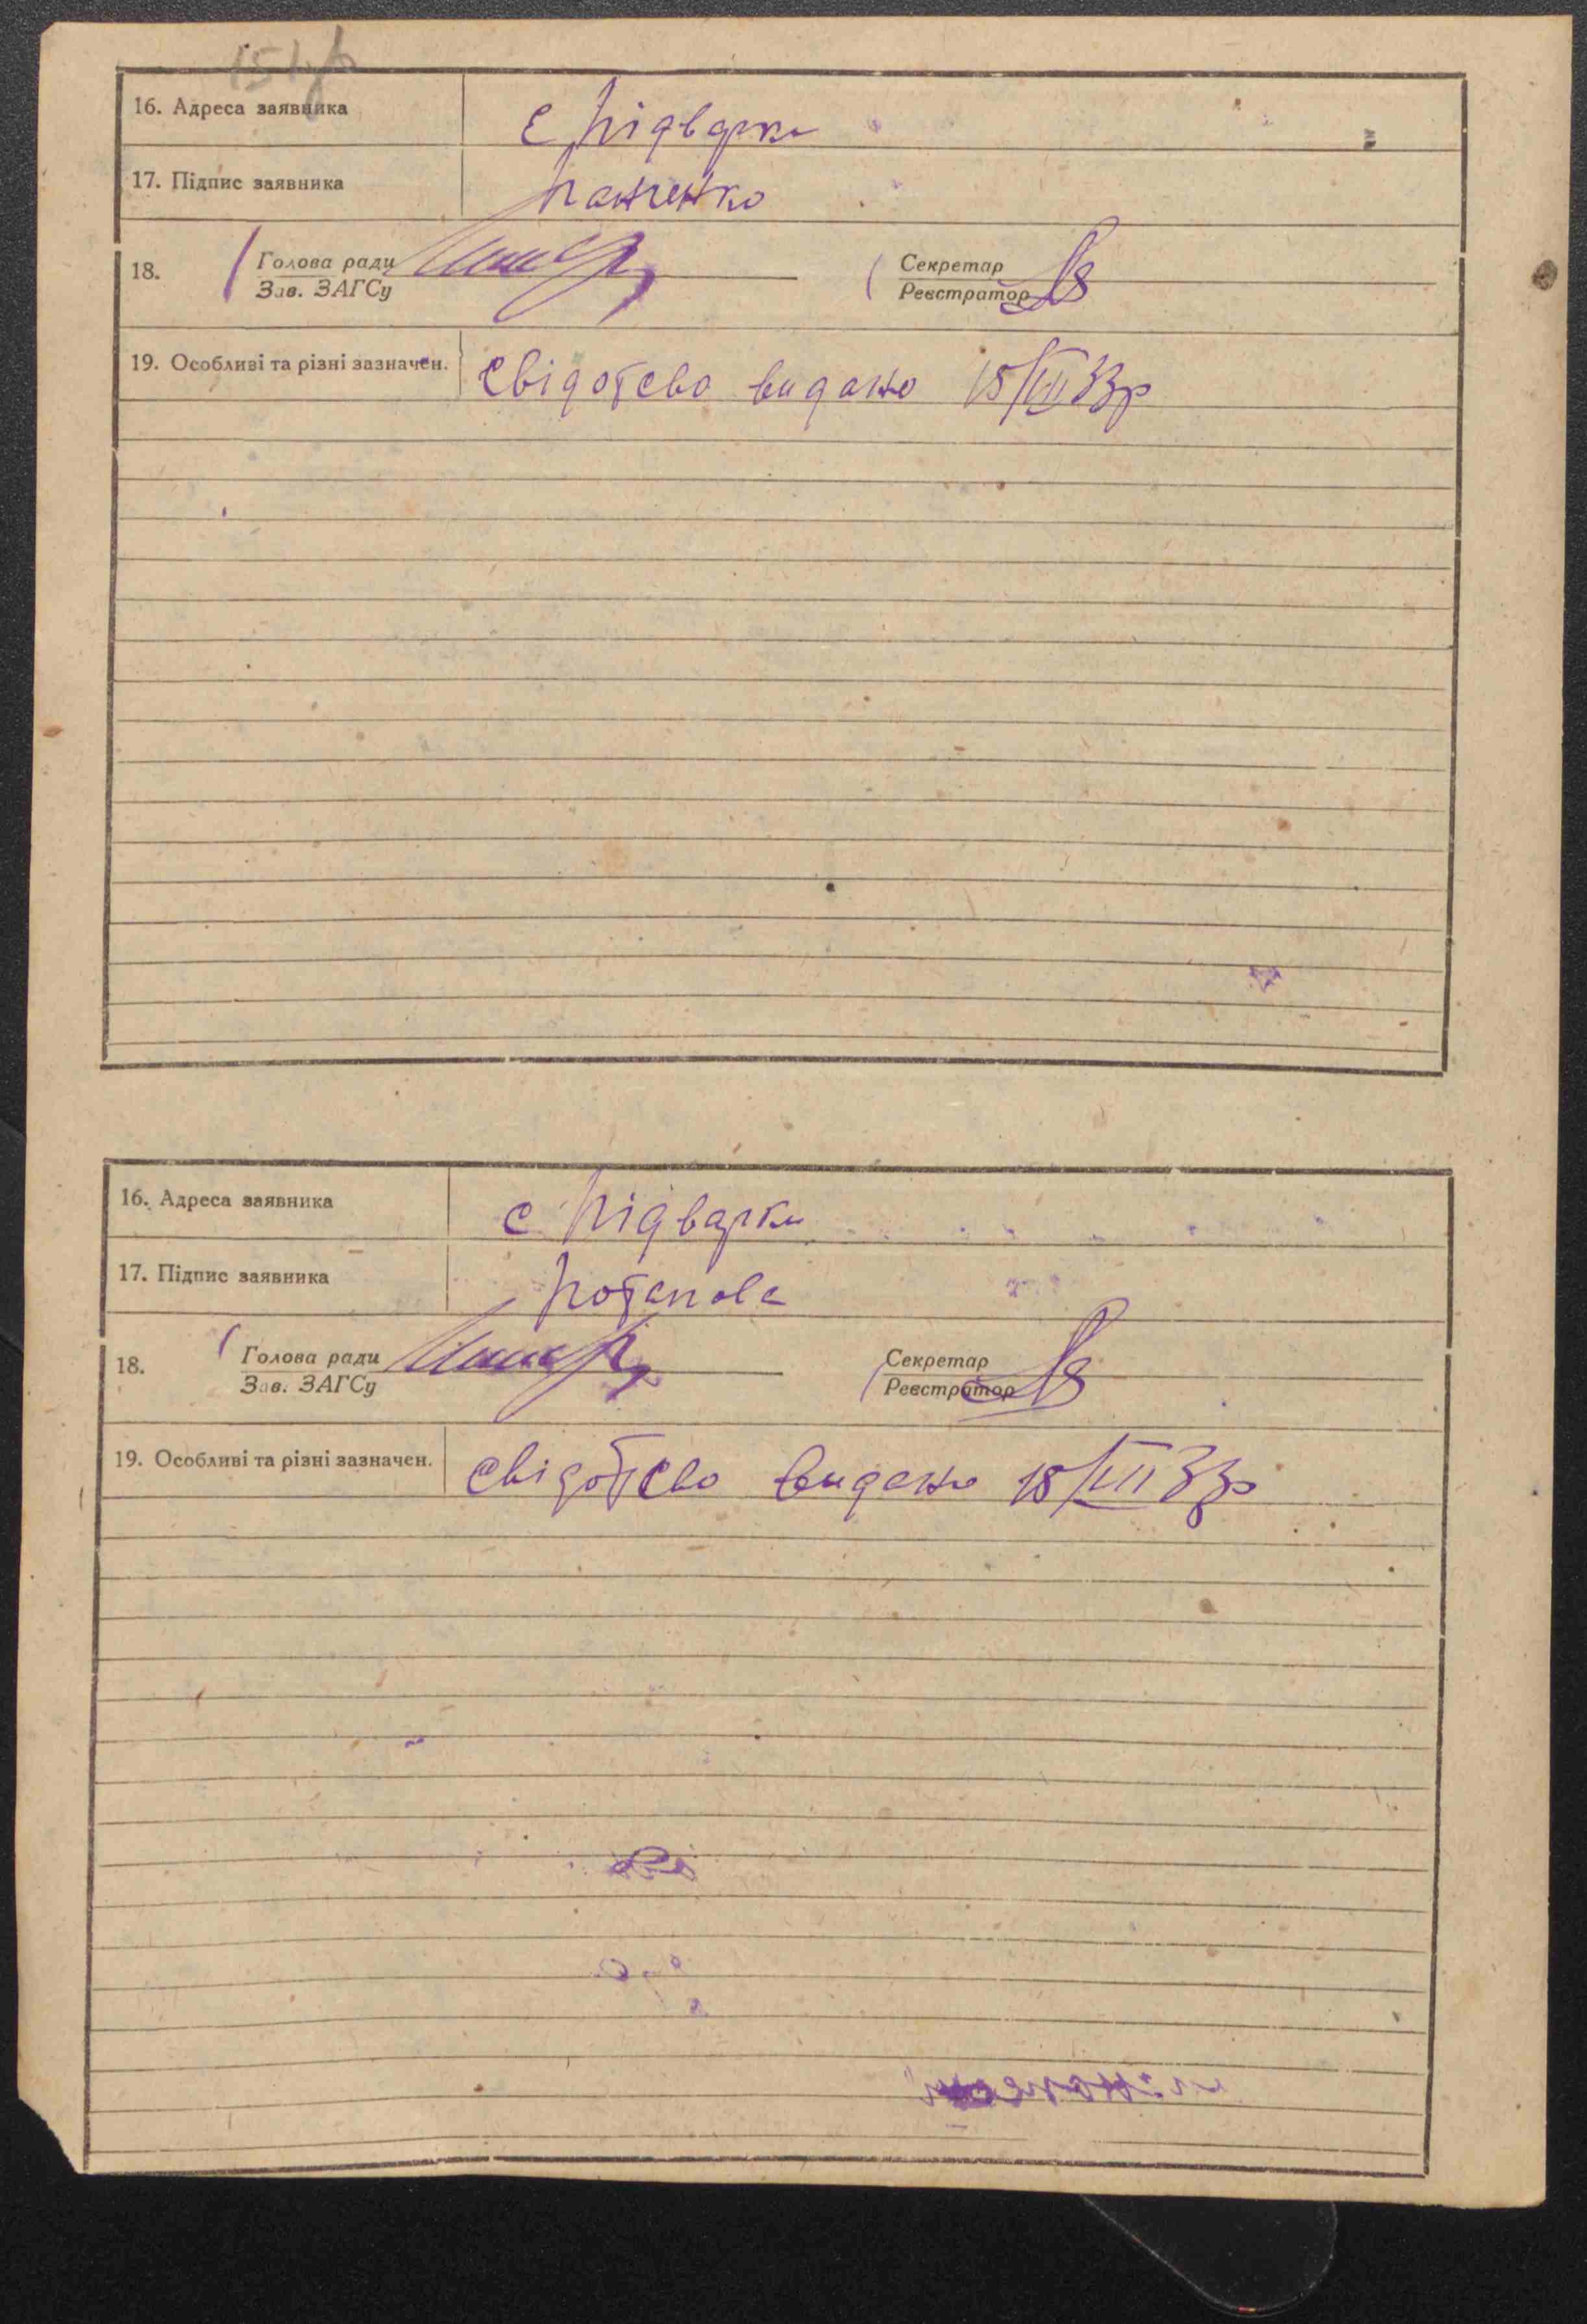 16. Адреса заявника с Підварки
17. Підпис заявника Панченко
18. Голова ради Секретар
Зав. ЗАГСу Реєстратор
19. Особливі та різні зазначен. свідотсво видано 15/VII 33р
16. Адреса заявника с Підварки
17. Підпис заявника Потапова
18. Голова ради Секретар
Зав. ЗАГСу Реєстратор
19. Особливі та різні зазначен. свідотсво видано 18/VII 33р